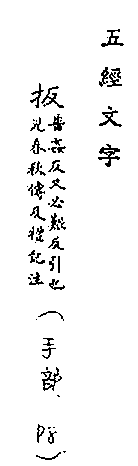 五經文字
扳 普姦反又必反引也
見春秋傳及禮記注
(手部, P8)